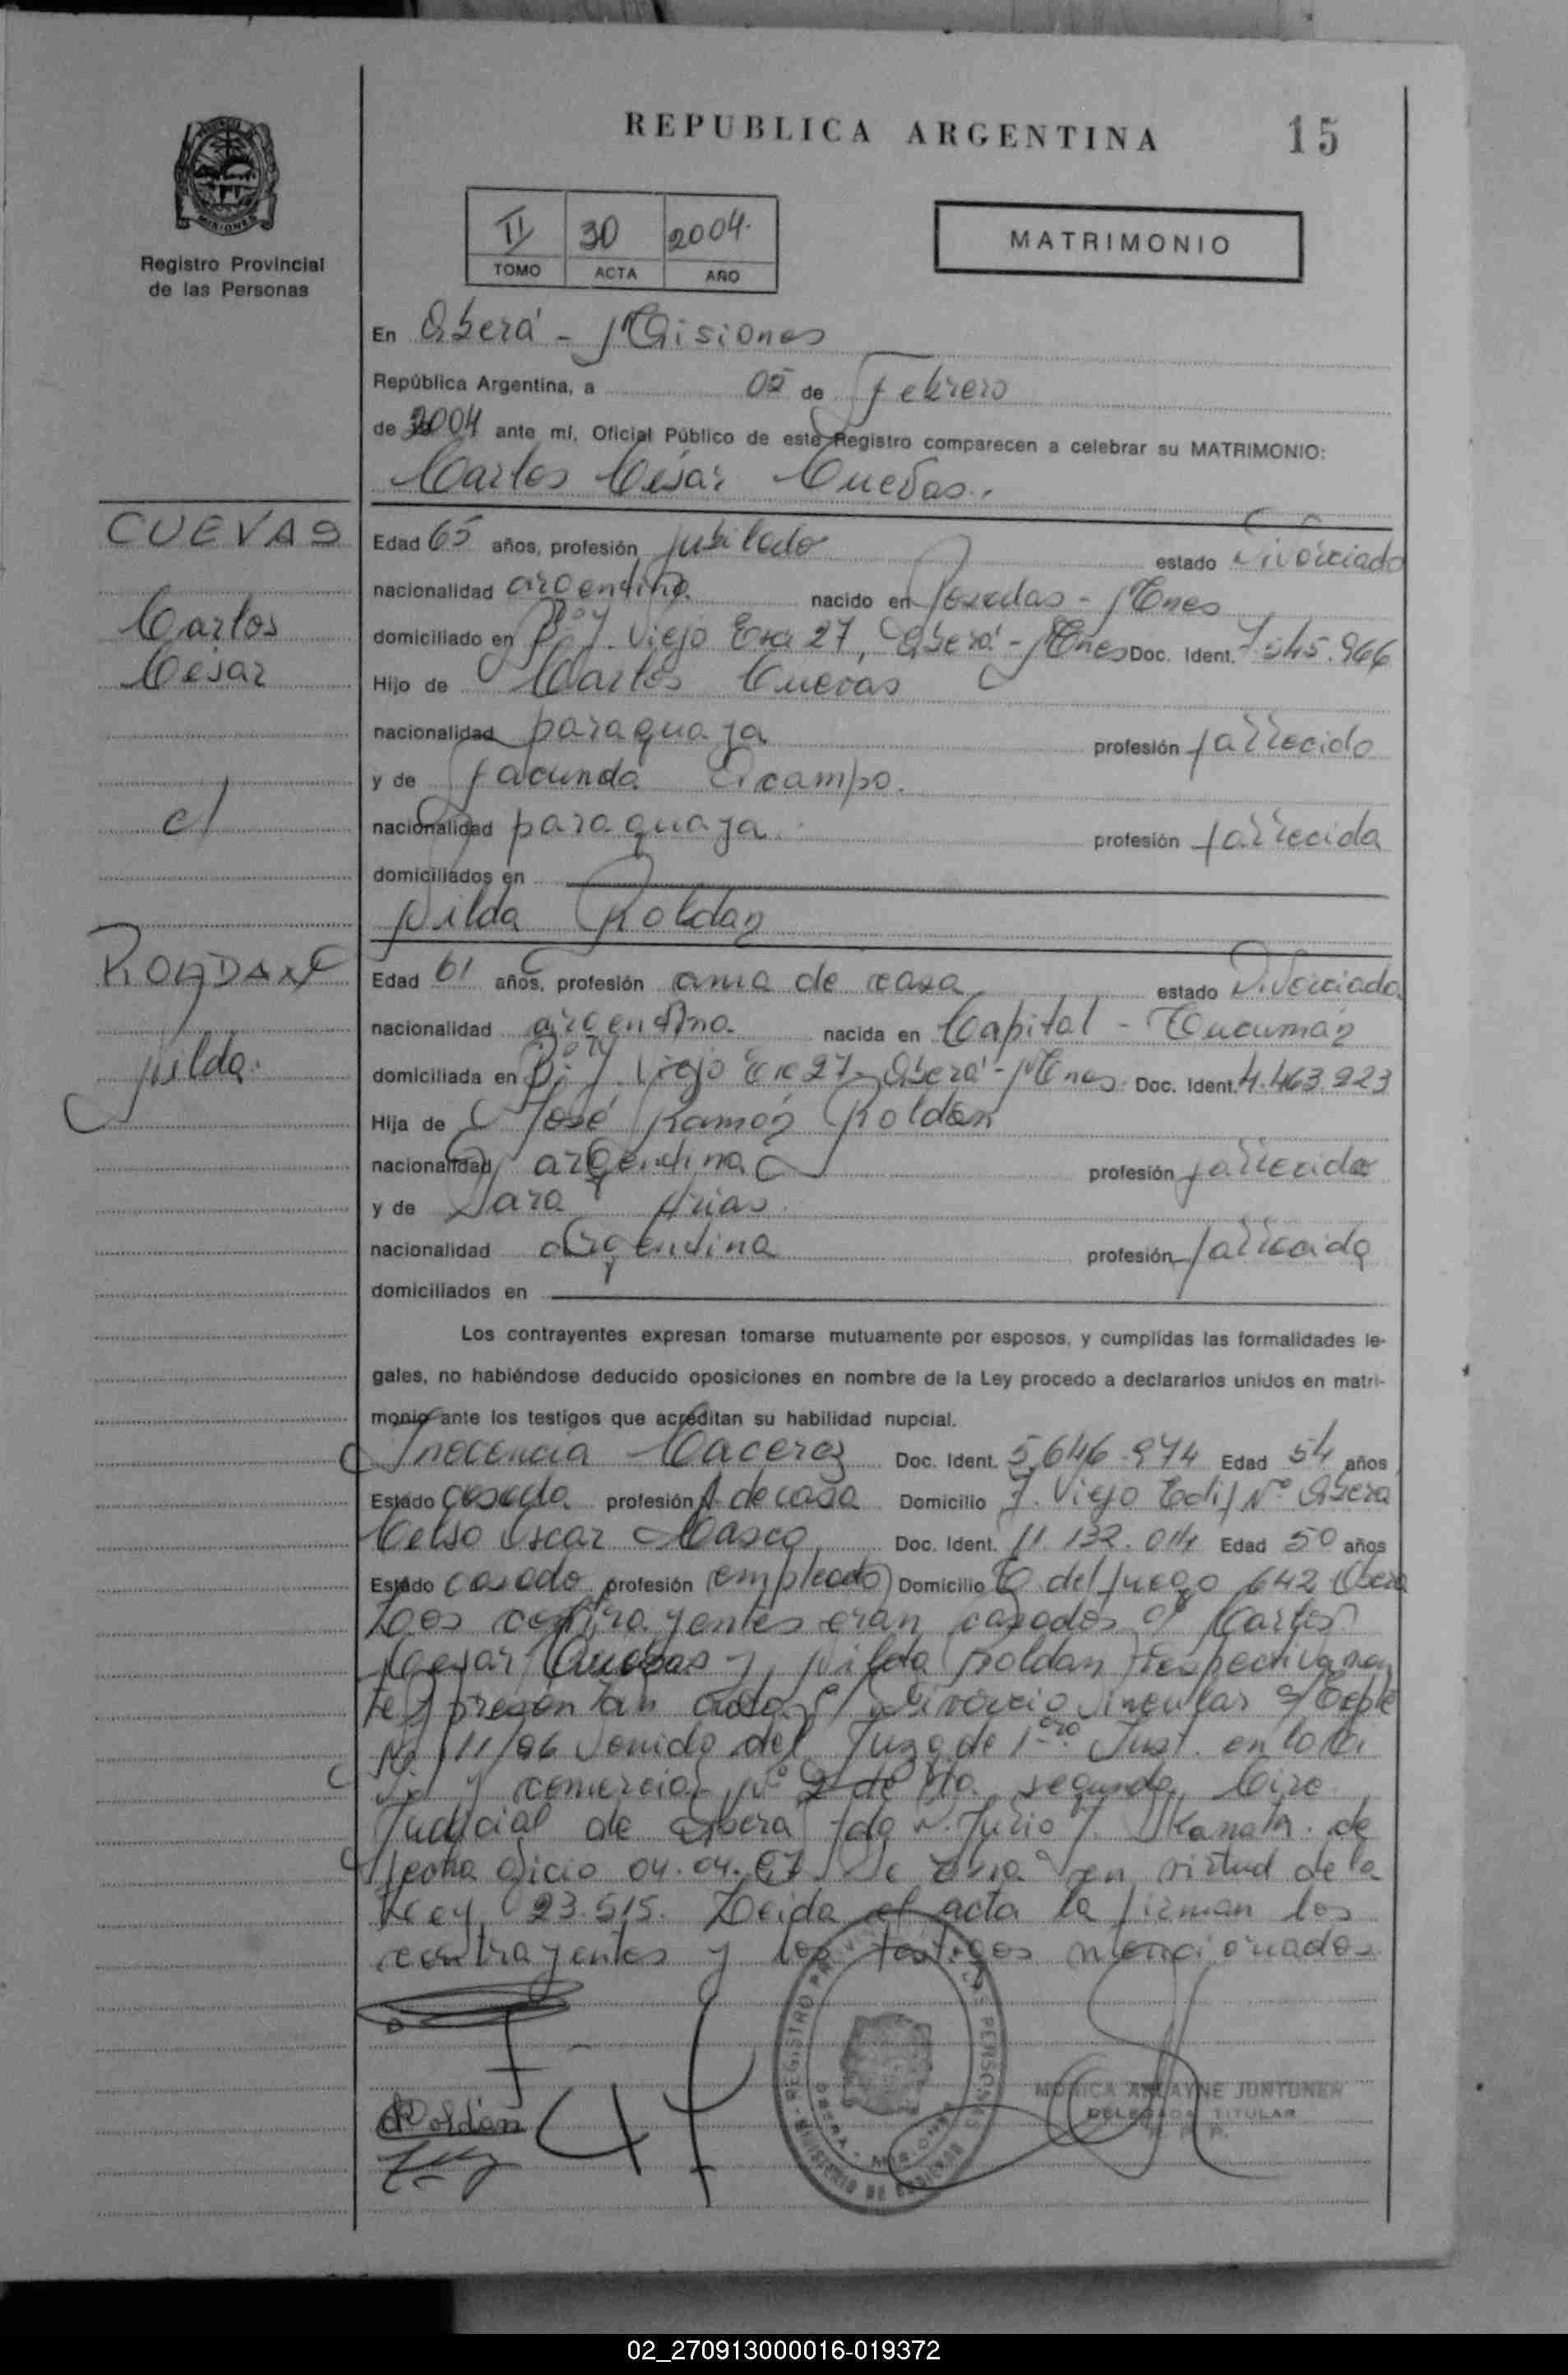 REPUBLICA ARGENTINA
15
Registro Provincial
de las Personas
II 30 2004.
TOMO ACTA AÑO
MATRIMONIO
En Oberá - Misiones
República Argentina, a 05 de Febrero
de 2004 ante mí, Oficial Público de este Registro comparecen a celebrar su MATRIMONIO:
Carlos César Cuevas.
CUEVAS
Carlos
César
c/
ROLDAN
Nilda.
Edad 65 años, profesión jubilado estado Divorciado
nacionalidad argentina nacido en Posadas - Mnes
domiciliado en Viejo 27, Oberá - Mnes Doc. Ident. 7.545.966
Hijo de Carlos Cuevas
nacionalidad paraguaya profesión fallecido
y de Facunda Ocampo.
nacionalidad paraguaya. profesión fallecida
domiciliados en
Nilda Roldan
Edad 61 años, profesión ama de casa estado Divorciada
nacionalidad argentina nacida en Capital - Tucumán
domiciliada en Viejo 27. Oberá - Mnes. Doc. Ident. 4.463.923
Hija de José Ramón Roldán
nacionalidad argentina profesión fallecido
y de Sara Arias.
nacionalidad argentina profesión fallecida
domiciliados en
Los contrayentes expresan tomarse mutuamente por esposos, y cumplidas las formalidades le-
gales, no habiéndose deducido oposiciones en nombre de la Ley procedo a declararlos unidos en matri-
monio ante los testigos que acreditan su habilidad nupcial.
Inocencia Caceres Doc. Ident. 5.646.974 Edad 54 años
Estado casada profesión A. de casa Domicilio J. Viejo Edif Nº Oberá
Celso Oscar Doc. Ident. 11.132.014 Edad 50 años
Estado casado profesión empleado Domicilio T. del fuego 642 Oberá
Los contrayentes eran casados c/ Carlos
Cesar Cuevas y Nilda Roldan respectivamen
te presentan Divorcio Vincular s/ Expte
Nº 111/96 venido del Juzg. de 1ra. Inst. en lo Ci
vil y comercial Nº 2 de segunda Circ.
Judicial de Oberá de
fecha oficio 04.04.97 en virtud de la
Ley 23.515. Leida el acta la firman los
contrayentes y los testigos mencionados
NRoldán
REGISTRO PROVINCIAL DE LAS PERSONAS
OBERA - MISIONES
MINISTERIO DE GOBIERNO
MONICA JUNTUNEN
DELEGADA TITULAR
R. P. P.
02_270913000016-019372